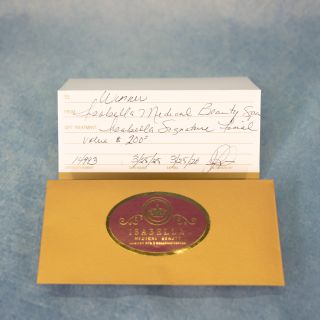 TO: Winner
FROM: Isabella Medical Beauty Spa
GIFT TREATMENT: Isabella Signature Facial
value $ 200
14993 3/25/25
ISABELLA
MEDICAL BEAUTY